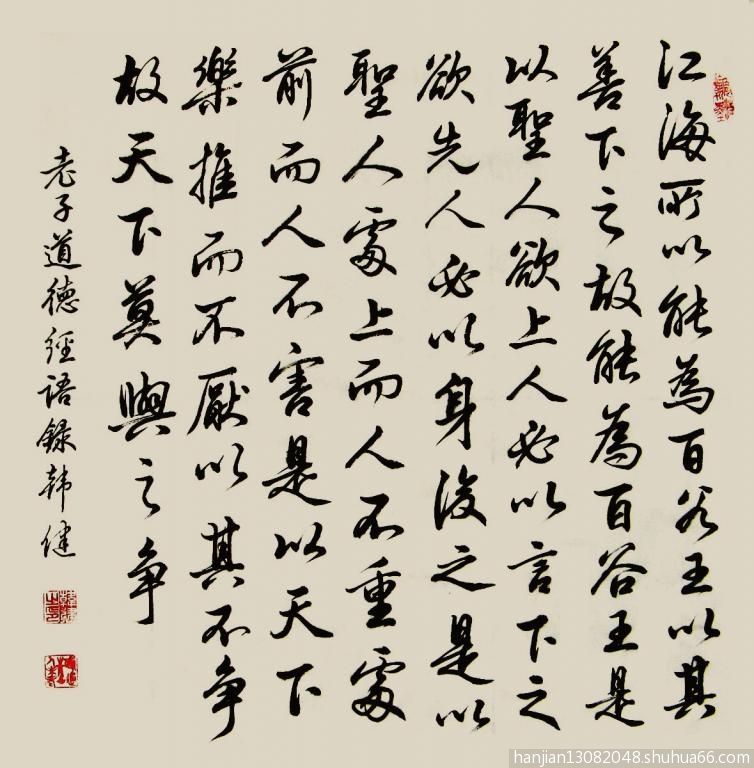 江海所以能為百谷王以其
善下之故能為百谷王是
以聖人欲上人必以言下之
欲先人必以身後之是以
聖人處上而人不重處
前而人不害是以天下
樂推而不厭以其不争
故天下莫與之争
老子道德經語録韩健
hanjian13082048.shuhua66.com